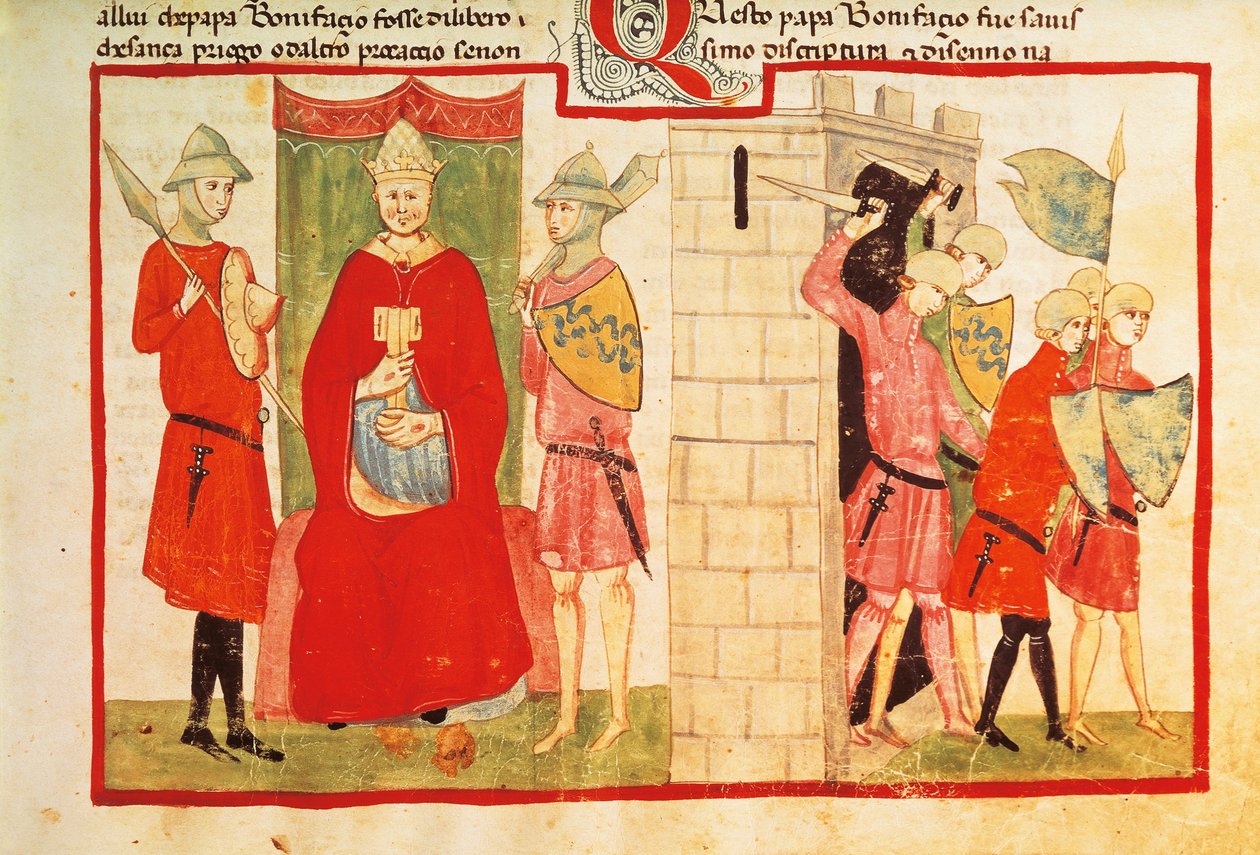 allui chepapa Bonifaçio fosse dilibero
chesança priego o daltro procaccio senon
Questo papa Bonifaçio fue savis
simo discriptura ⁊ disenno na